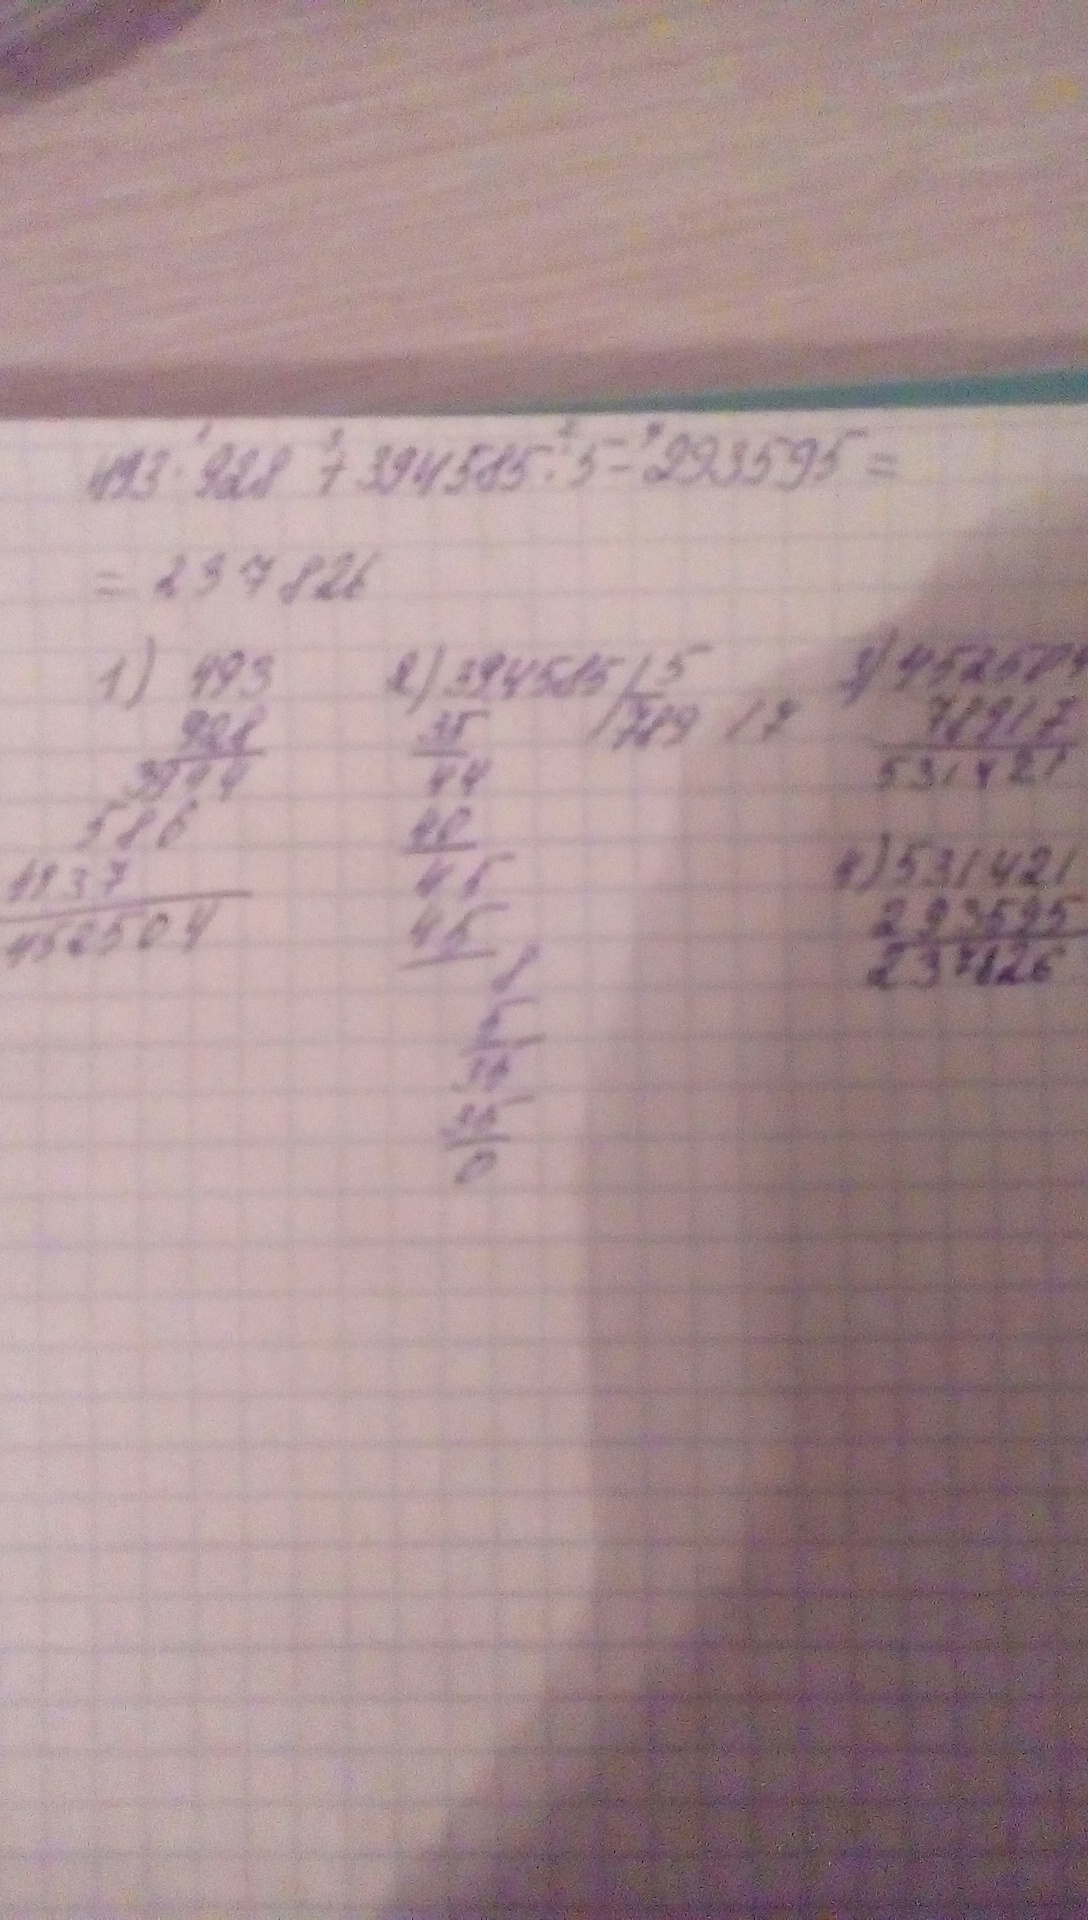 493 · 928 + 394585 : 5 - 293595 =
= 237826
1) 493
928
3944
986
4437
457504
2) 394585 | 5
35
78917
44
40
45
45
8
5
35
35
0
3) 457504
78917
531421
4) 531421
293595
237826